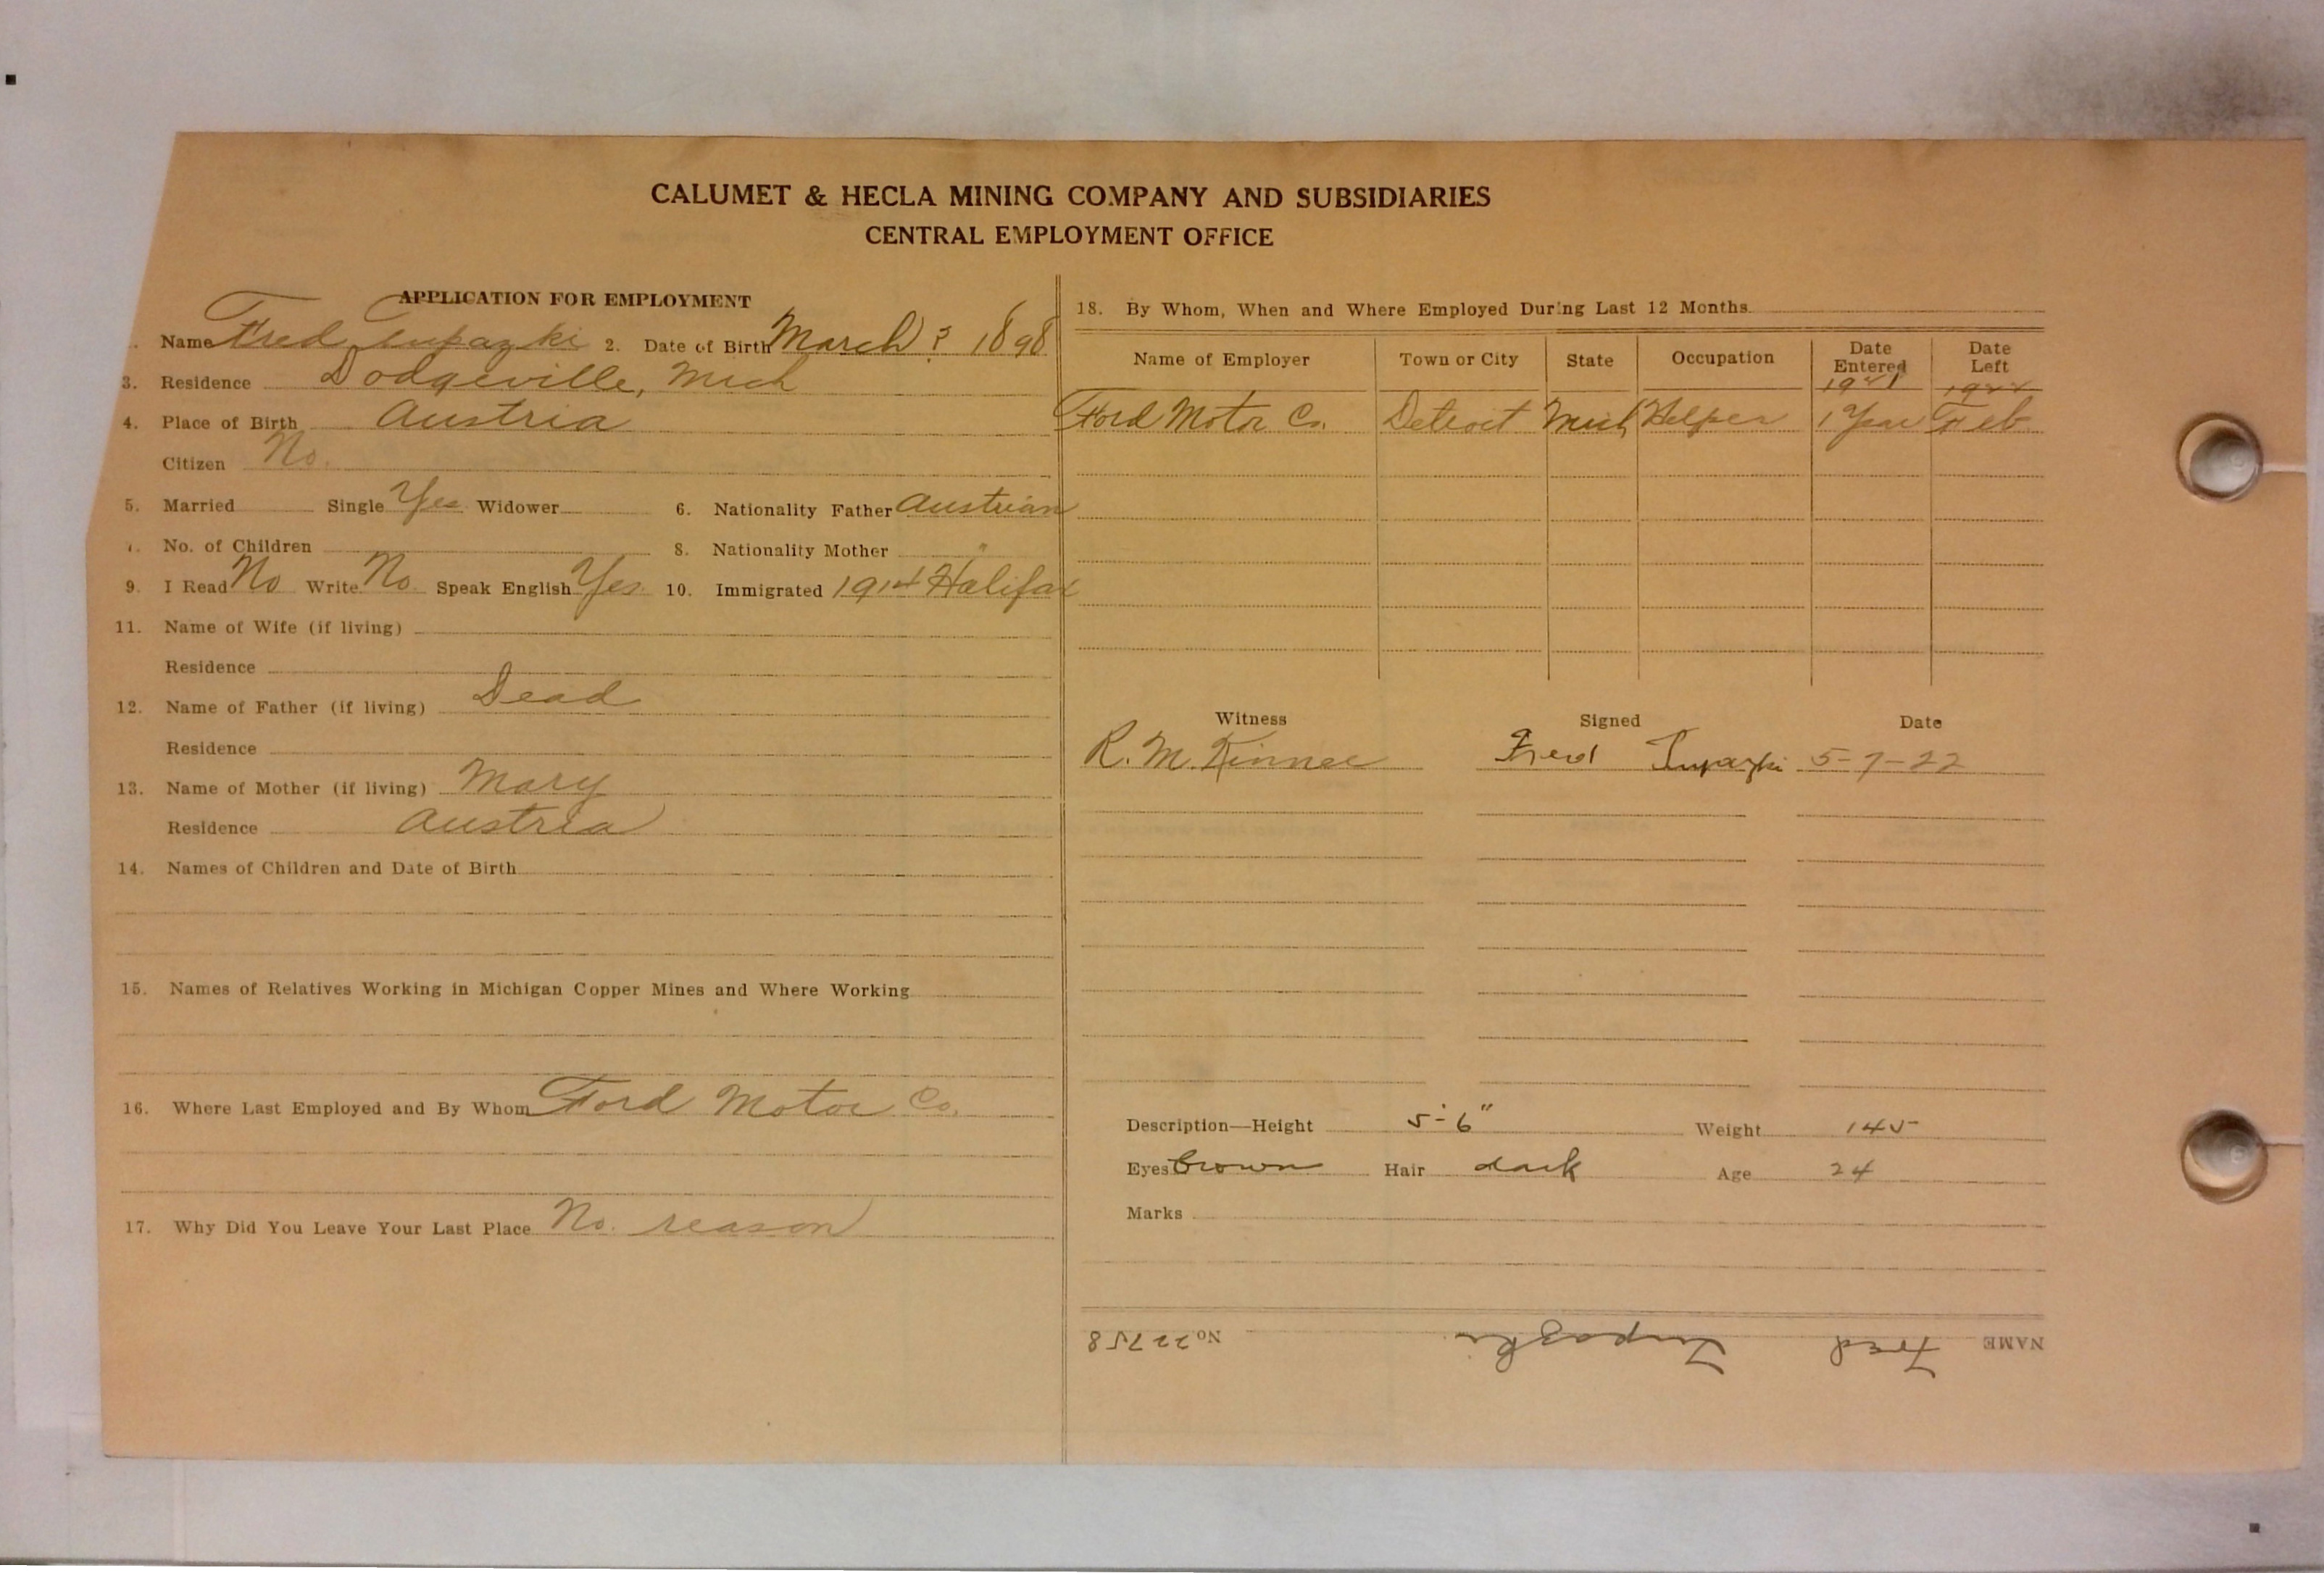 CALUMET & HECLA MINING COMPANY AND SUBSIDIARIES
CENTRAL EMPLOYMENT OFFICE
APPLICATION FOR EMPLOYMENT
. Name Fred Tupazki 2. Date of Birth March ? 1898
3. Residence Dodgeville, Mich
4. Place of Birth Austria
Citizen No.
5. Married Single Yes Widower 6. Nationality Father Austrian
7. No. of Children 8. Nationality Mother "
9. I Read No Write No. Speak English Yes. 10. Immigrated 1914 Halifax
11. Name of Wife (if living)
Residence
12. Name of Father (if living) Dead
Residence
13. Name of Mother (if living) Mary
Residence Austria
14. Names of Children and Date of Birth
15. Names of Relatives Working in Michigan Copper Mines and Where Working
16. Where Last Employed and By Whom Ford Motor Co.
17. Why Did You Leave Your Last Place No. reason
18. By Whom, When and Where Employed During Last 12 Months
Name of Employer Town or City State Occupation Date Entered Date Left
1921 1922
Ford Motor Co. Detroit Mich Helper 1 Year Feb
Witness Signed Date
R. M. Kinnee Fred Tupazki 5-7-22
Description—Height 5'-6" Weight 145
Eyes brown Hair dark Age 24
Marks
NAME Fred Tupazki No 22758